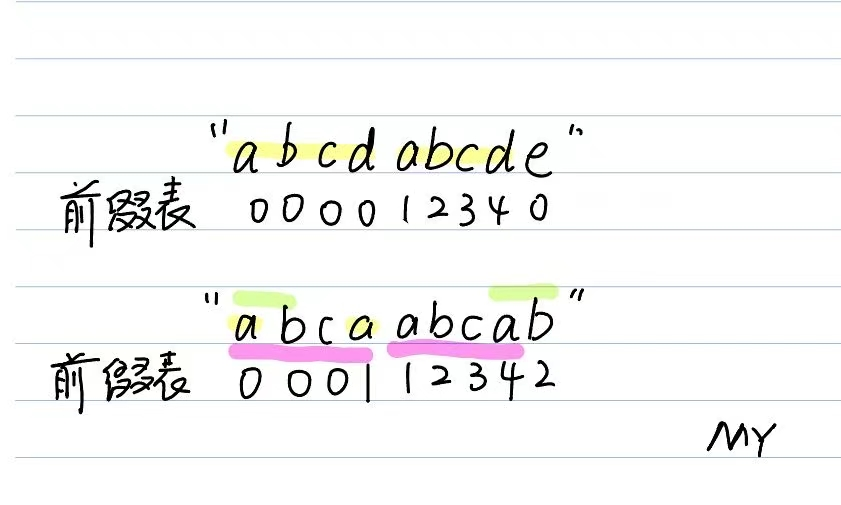 "abcd abcde"
前缀表 0 0 0 0 1 2 3 4 0
"abca abcab"
前缀表 0 0 0 1 1 2 3 4 2
MY